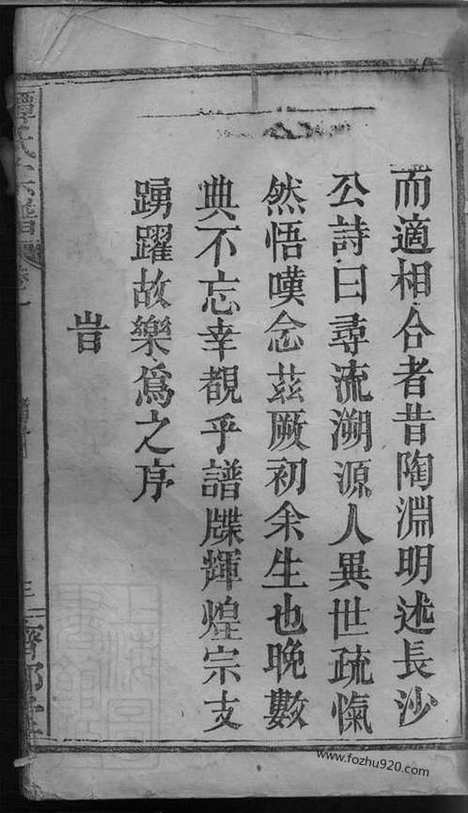 而適相合者昔陶淵明述長沙
公詩曰尋流溯源人異世疏愾
然悟嘆念茲厥初余生也晚數
典不忘幸觀乎譜牒輝煌宗支
踴躍故樂為之序
旹
譚氏六修
www.fozhu920.com